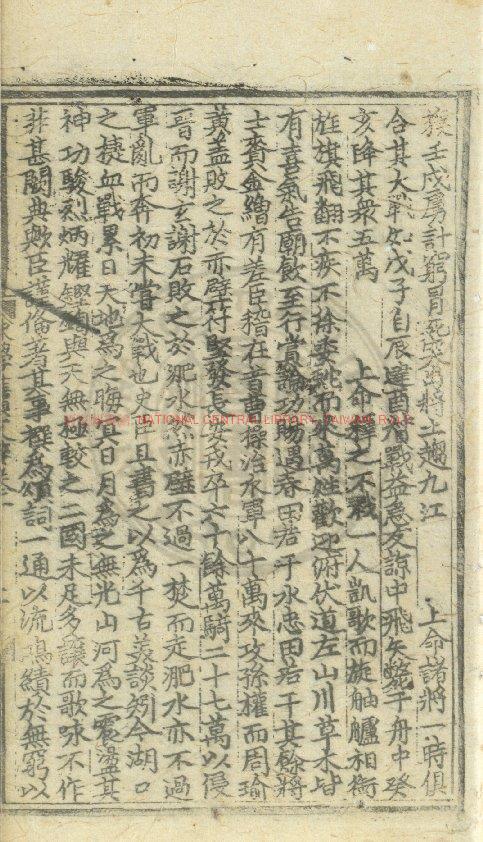 援壬戌虜計窮冒死突出將士趨九江　上命諸將一時俱
合其大戰如戊子自辰達酉殲戰益急友諒中飛矢斃于舟中癸
亥降其衆五萬　上命釋之不戮一人凱歌而旋舳艫相銜
旌旗飛翻不疾不徐委蛇而來萬姓歡迎俯伏道左山川草木皆
有喜氣告廟飲至行賞論功賜遇春田若干水忠田若干其餘將
士賚金繒有差臣稽在昔曹操治水軍八十萬來攻孫權而周瑜
黃蓋敗之於赤壁苻堅發長安戎卒六十餘萬騎二十七萬以侵
晉而謝玄謝石敗之於淝水然赤壁不過一焚而走淝水亦不過
軍亂而奔初未嘗大戰也史臣且書之以爲千古美談矧今湖口
之捷血戰累日天地爲之晦冥日月爲之無光山河爲之震盪其
神功駿烈炳耀鏗鍧與天無極較之二國未足多讓而歌咏不作
非甚闕典歟臣謹倫著其事撰爲頌詞一通以流鴻績於無窮以
NATIONAL CENTRAL LIBRARY, TAIWAN, R.O.C.